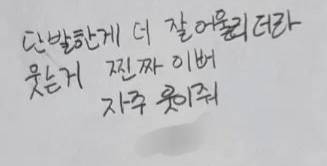 단발한게 더 잘어울리더라
웃는거 찐짜 이버
자주 웃이줘